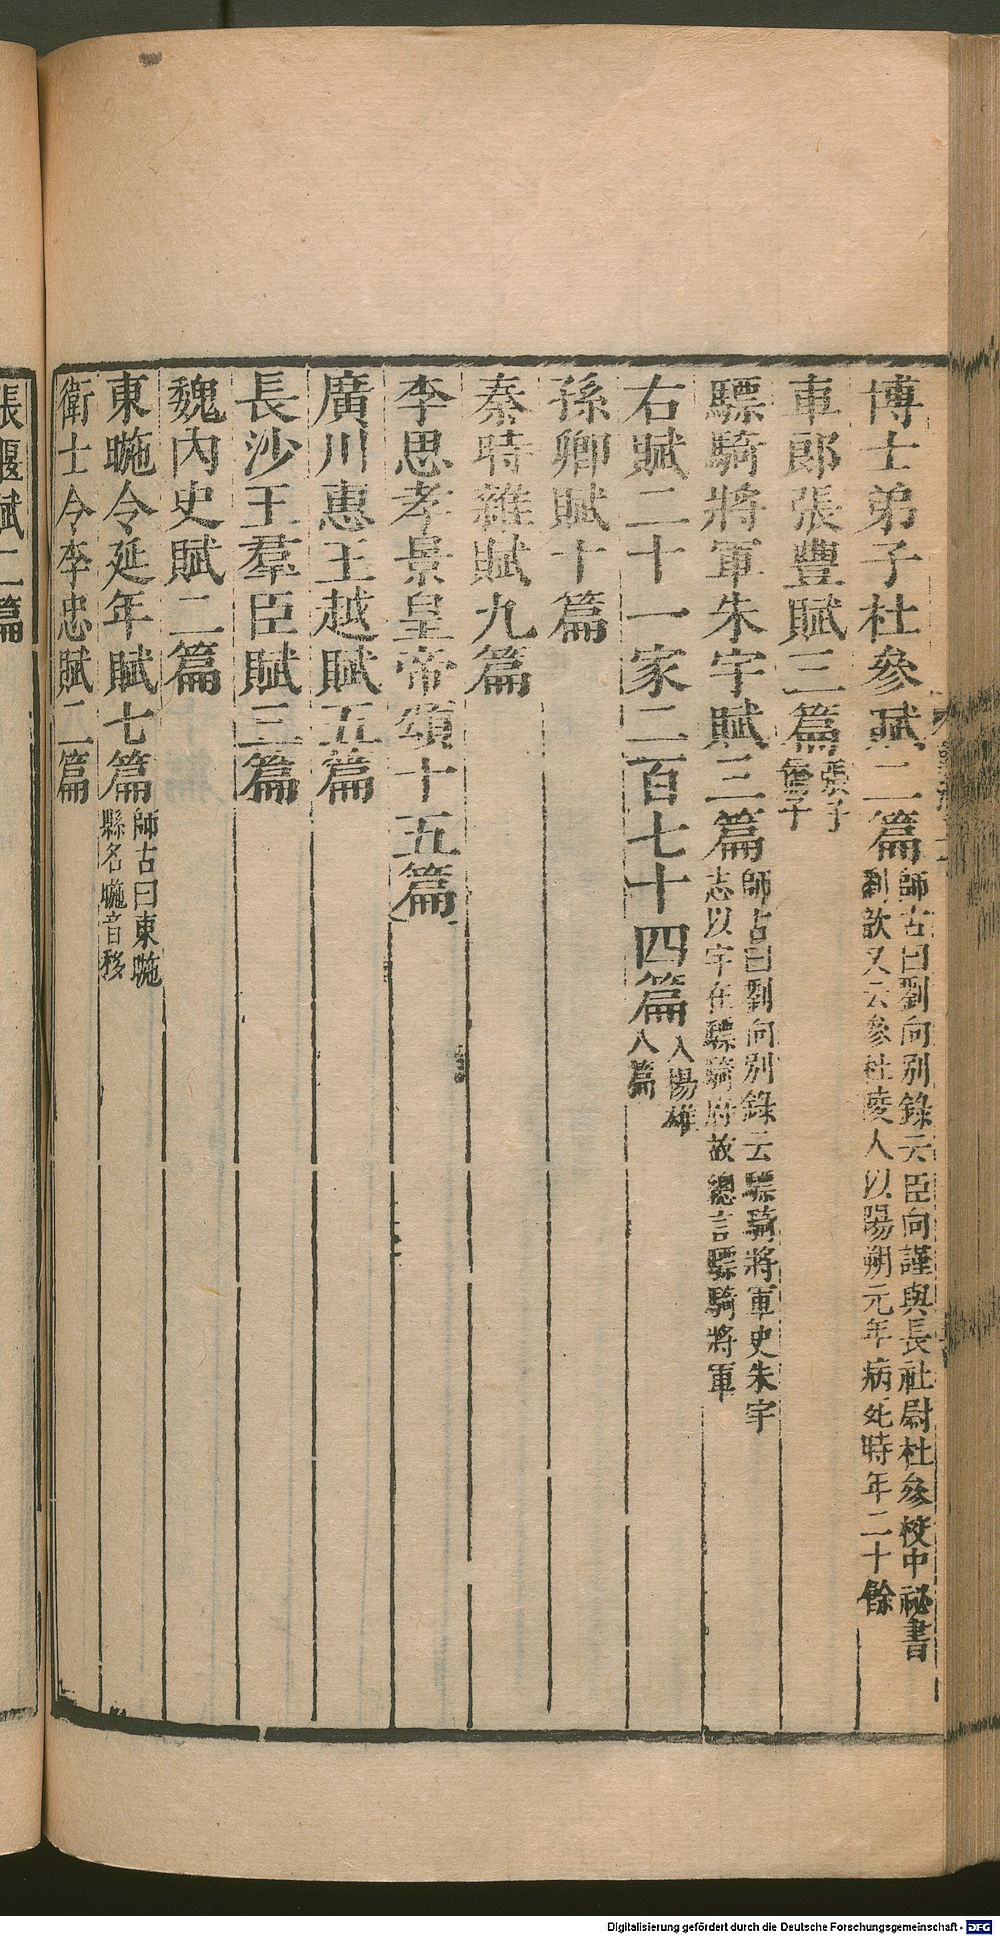 博士弟子杜參賦二篇師古曰劉向別錄云臣向謹與長社尉杜參校中祕書劉歆又云參杜陵人以陽朔元年病死時年二十餘
車郎張豐賦三篇張子僑子
驃騎將軍朱宇賦三篇師古曰劉向別錄云驃騎將軍史朱宇志以宇在驃騎府故總言驃騎將軍
右賦二十一家二百七十四篇入陽雄八篇
孫卿賦十篇
秦時雜賦九篇
李思孝景皇帝頌十五篇
廣川惠王越賦五篇
長沙王羣臣賦三篇
魏內史賦二篇
東暆令延年賦七篇師古曰東暆縣名暆音移
衛士令李忠賦二篇
張偃賦二篇
Digitalisierung gefördert durch die Deutsche Forschungsgemeinschaft - DFG